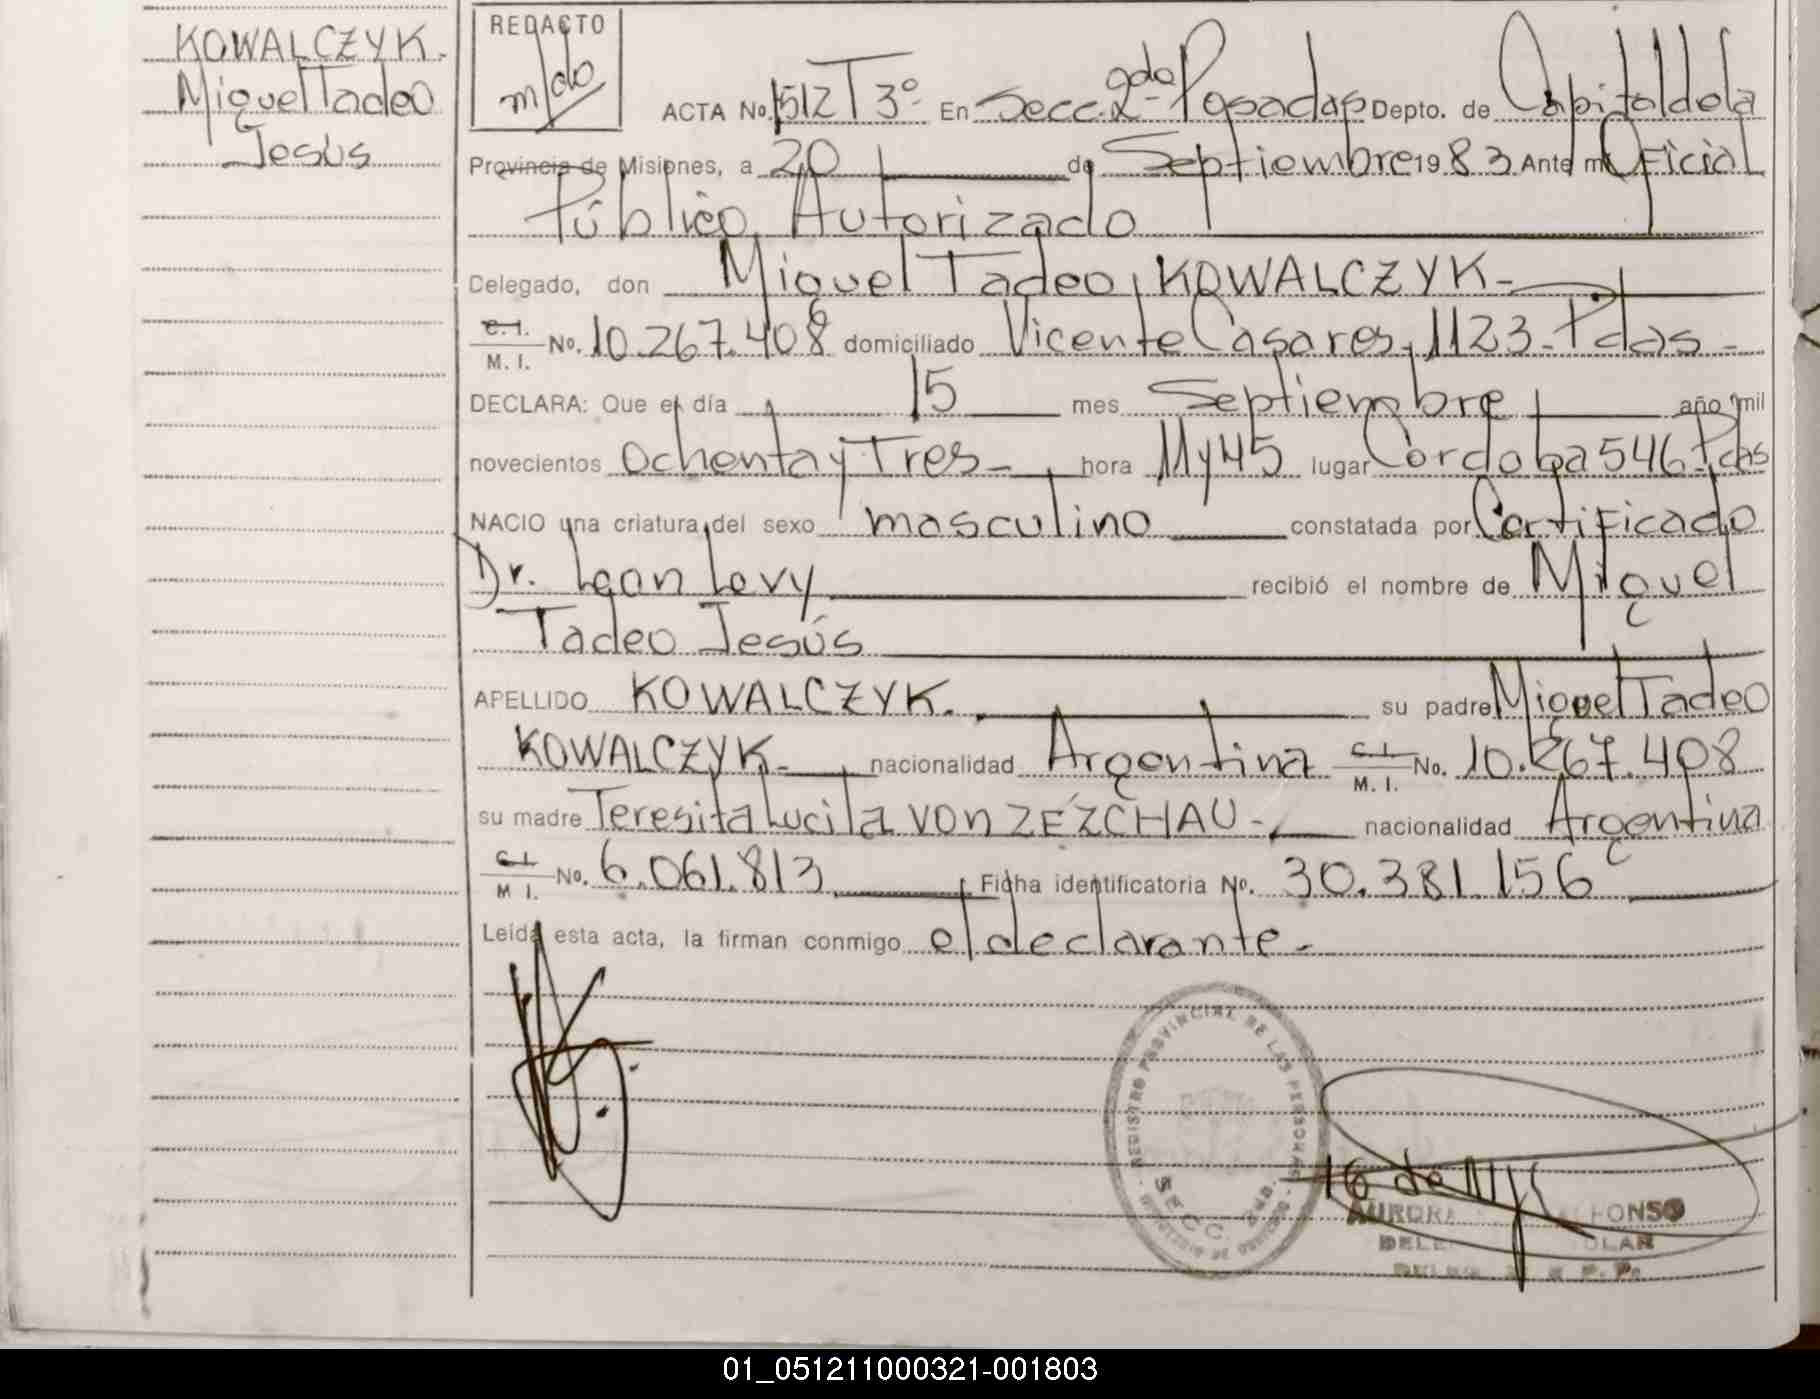 KOWALCZYK.
Miguel Tadeo
Jesús
REDACTO
m/do
ACTA No. 1512 T 3º- En Secc. 2da- Posadas Depto. de Capital de la
Provincia de Misiones, a 20 de Septiembre 1983 Ante mi Oficial
Público Autorizado
Delegado, don Miguel Tadeo, KOWALCZYK-
C. I. / M. I. No. 10.267.408 domiciliado Vicente Casares, 1123- Pdas-
DECLARA: Que el día 15 mes Septiembre año mil
novecientos Ochenta y Tres- hora 11 y 45 lugar Cordoba 546- Pdas
NACIO una criatura del sexo masculino constatada por Certificado
Dr. Leon Levy recibió el nombre de Miguel
Tadeo Jesús
APELLIDO KOWALCZYK. su padre Miguel Tadeo
KOWALCZYK- nacionalidad Argentina C. I. / M. I. No. 10.267.408
su madre Teresita Lucila von ZEZCHAU- nacionalidad Argentina
C. I. / M I. No. 6.061.813 Ficha identificatoria No. 30.381.156
Leída esta acta, la firman conmigo el declarante-
REGISTRO PROVINCIAL DE LAS PERSONAS
SECC. 2da.
AURORA FONSO
01_051211000321-001803